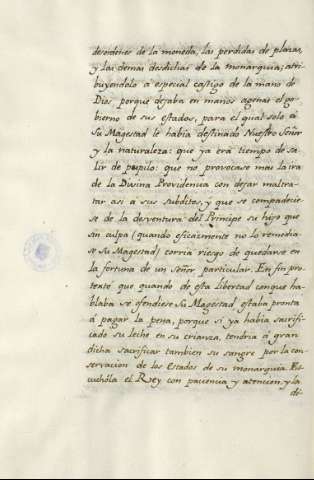 desordenes de la moneda, las perdidas de plazas,
y las demas desdichas de la monarquia; atri-
buyendolo a especial castigo de la mano de
Dios porque dejaba en manos agenas el go-
bierno de sus estados, para el qual solo á
Su Magestad le habia destinado Nuestro Señor
y la naturaleza: que ya era tiempo de sa-
lir de pupilo: que no provocase mas la ira
de la Divina Providencia con dejar maltra-
tar asi á sus subditos, y que se compadecie-
se de la desventura del Principe su hijo que
sin culpa (quando eficazmente no lo remedia-
se su Magestad) corria riesgo de quedarse en
la fortuna de un Señor particular. En fin pro-
texto que quando de esta libertad conque ha-
blaba se ofendiese Su Magestad estaba pronta
á pagar la pena, porque si ya habia sacrifi-
cado su leche en su crianza, tendria á gran
dicha sacrificar tambien su sangre por la con-
servacion de los Estados de su monarquia. Es-
cuchóla el Rey con paciencia y atencion, y la
di-